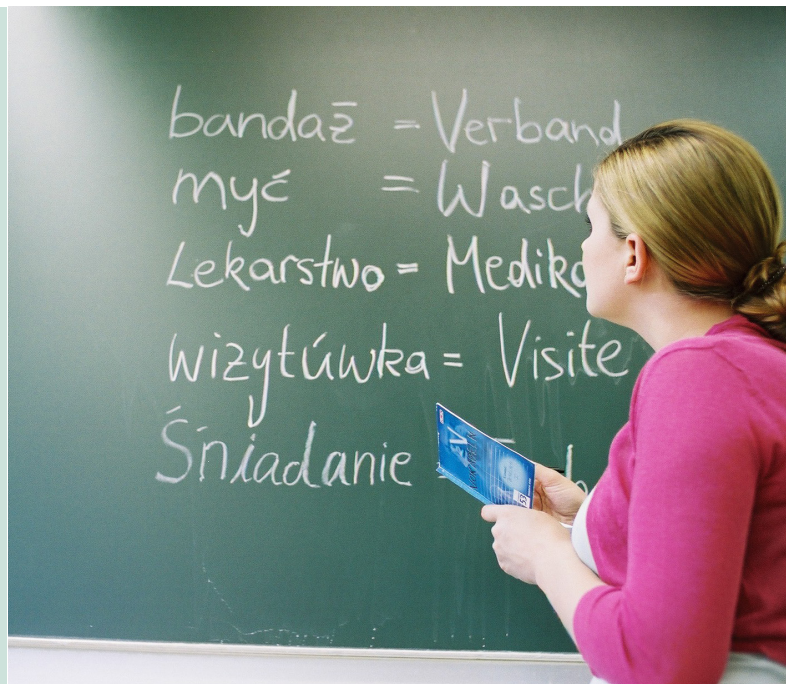 bandaż = Verband
myć = Wasch
Lekarstwo = Medika
wizytúwka = Visite
Śniadanie